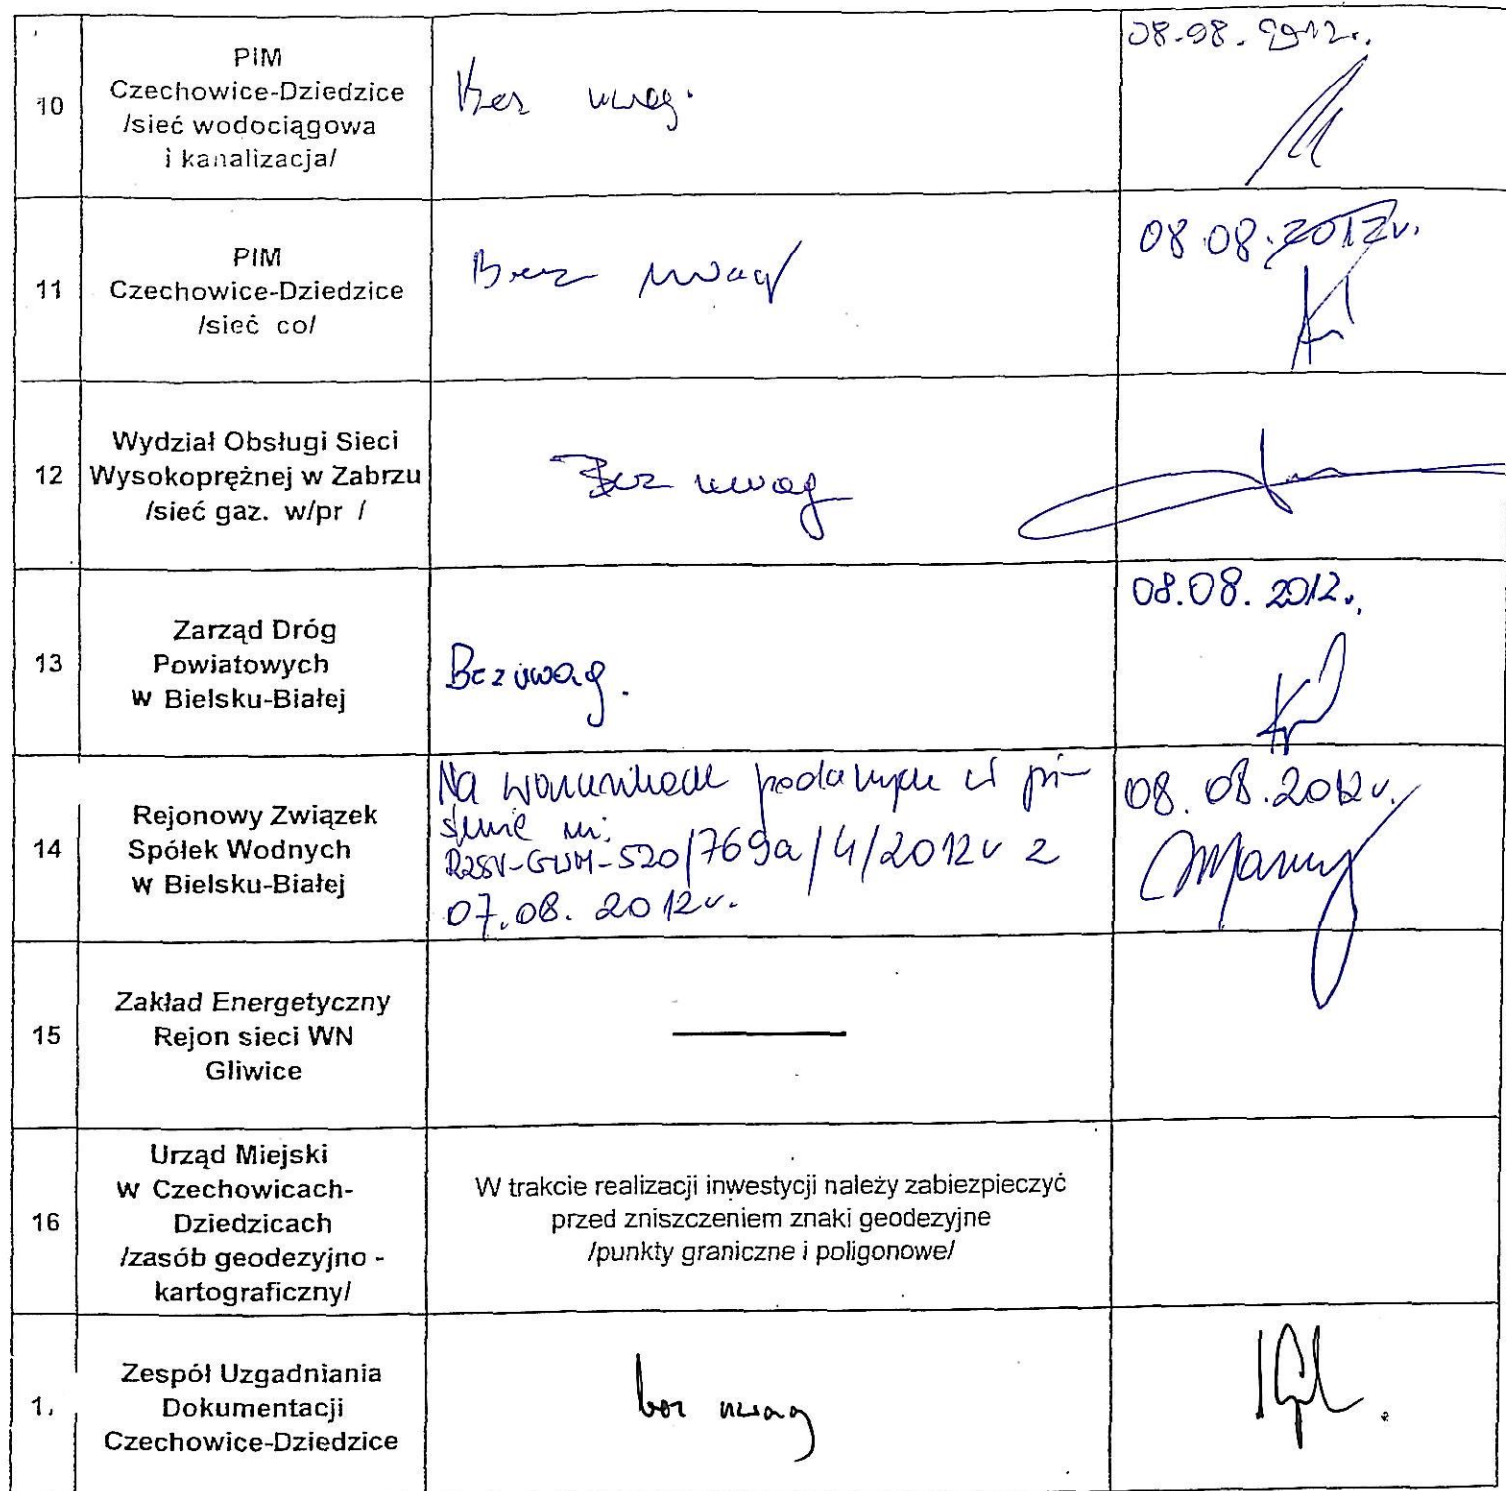 10
PIM
Czechowice-Dziedzice
/sieć wodociągowa
i kanalizacja/
Bez uwag.
08.08.2012r.
11
PIM
Czechowice-Dziedzice
/sieć co/
Bez uwag
08.08.2012r.
12
Wydział Obsługi Sieci
Wysokoprężnej w Zabrzu
/sieć gaz. w/pr /
Bez uwag
13
Zarząd Dróg
Powiatowych
w Bielsku-Białej
Bez uwag.
08.08.2012r.
14
Rejonowy Związek
Spółek Wodnych
w Bielsku-Białej
Na warunkach podanych w pi-
śmie nr:
RZSW-GWM-520/769a/4/2012r z
07.08.2012r.
08.08.2012r.
15
Zakład Energetyczny
Rejon sieci WN
Gliwice
16
Urząd Miejski
w Czechowicach-
Dziedzicach
/zasób geodezyjno -
kartograficzny/
W trakcie realizacji inwestycji należy zabiezpieczyć
przed zniszczeniem znaki geodezyjne
/punkty graniczne i poligonowe/
1
Zespół Uzgadniania
Dokumentacji
Czechowice-Dziedzice
bez uwag